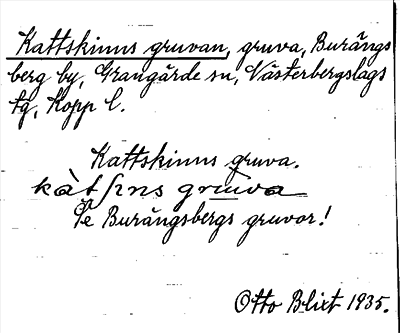 Kattskinns gruvan, gruva, Burängs
berg by, Grangärde sn, Västerbergslags
tg, Kopp l.
Kattskinns gruva.
kàtʃıns grūva
Se Burängsbergs gruvor!
Otto Blixt 1935.